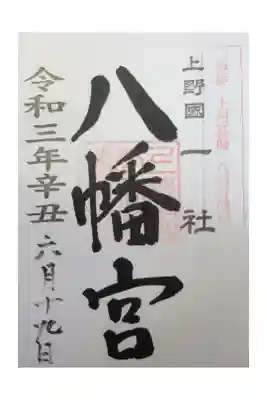 上野國一社
八幡宮
令和三年辛丑六月十九日